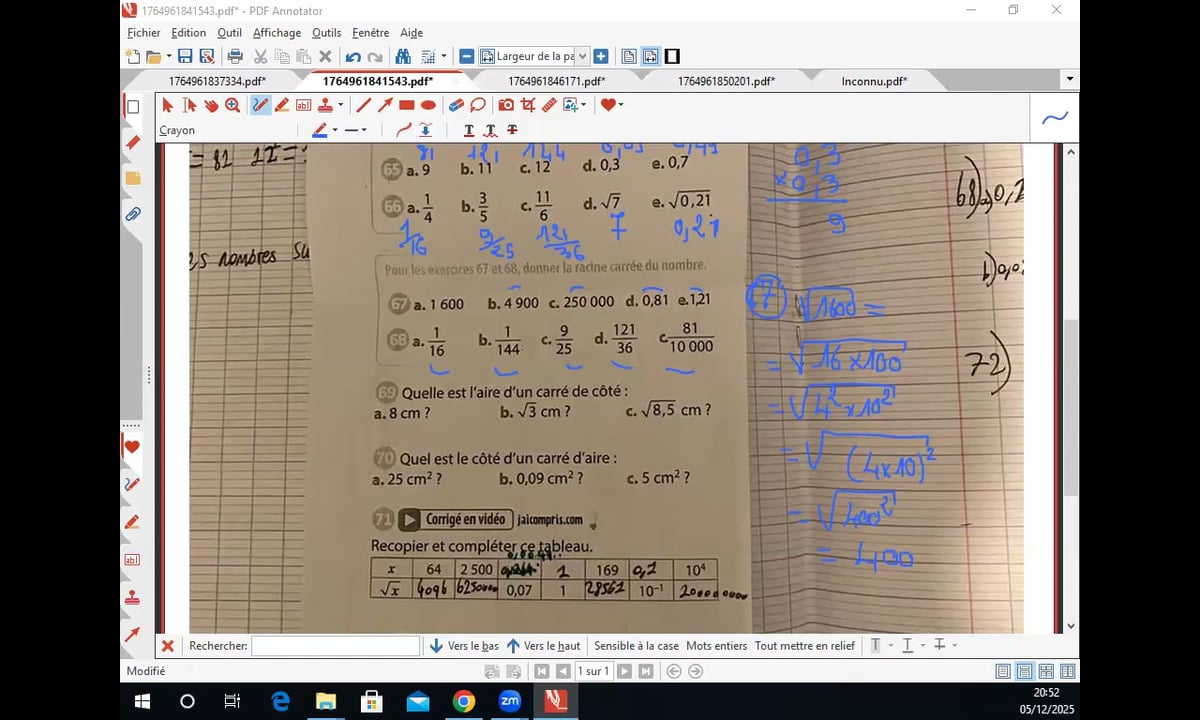 1764961841543.pdf* - PDF Annotator
Fichier Edition Outil Affichage Outils Fenêtre Aide
Largeur de la pa
1764961837334.pdf* 1764961841543.pdf* 1764961846171.pdf* 1764961850201.pdf* Inconnu.pdf*
Crayon
= 81
81 121 144
65 a. 9 b. 11 c. 12 d. 0,3 e. 0,7
66 a. 1/4 b. 3/5 c. 11/6 d. √7 e. √0,21
1/16 9/25 121/36 7 0,21
0,3
×0,3
9
68) a) 0,2
b) 0,0
72)
nombres su
Pour les exercices 67 et 68, donner la racine carrée du nombre.
67 a. 1 600 b. 4 900 c. 250 000 d. 0,81 e. 1,21
68 a. 1/16 b. 1/144 c. 9/25 d. 121/36 c. 81/10 000
69 Quelle est l'aire d'un carré de côté :
a. 8 cm ? b. √3 cm ? c. √8,5 cm ?
70 Quel est le côté d'un carré d'aire :
a. 25 cm² ? b. 0,09 cm² ? c. 5 cm² ?
71 Corrigé en vidéo jaicompris.com
Recopier et compléter ce tableau.
x 64 2 500 1 169 0,1 10⁴
√x 4096 0,07 1 28561 10⁻¹
√1600 =
= √16×100
= √4²×10²
= √(4×10)²
= √400²
= 400
Rechercher: Vers le bas Vers le haut Sensible à la case Mots entiers Tout mettre en relief
Modifié
1 sur 1
zm
20:52
05/12/2025